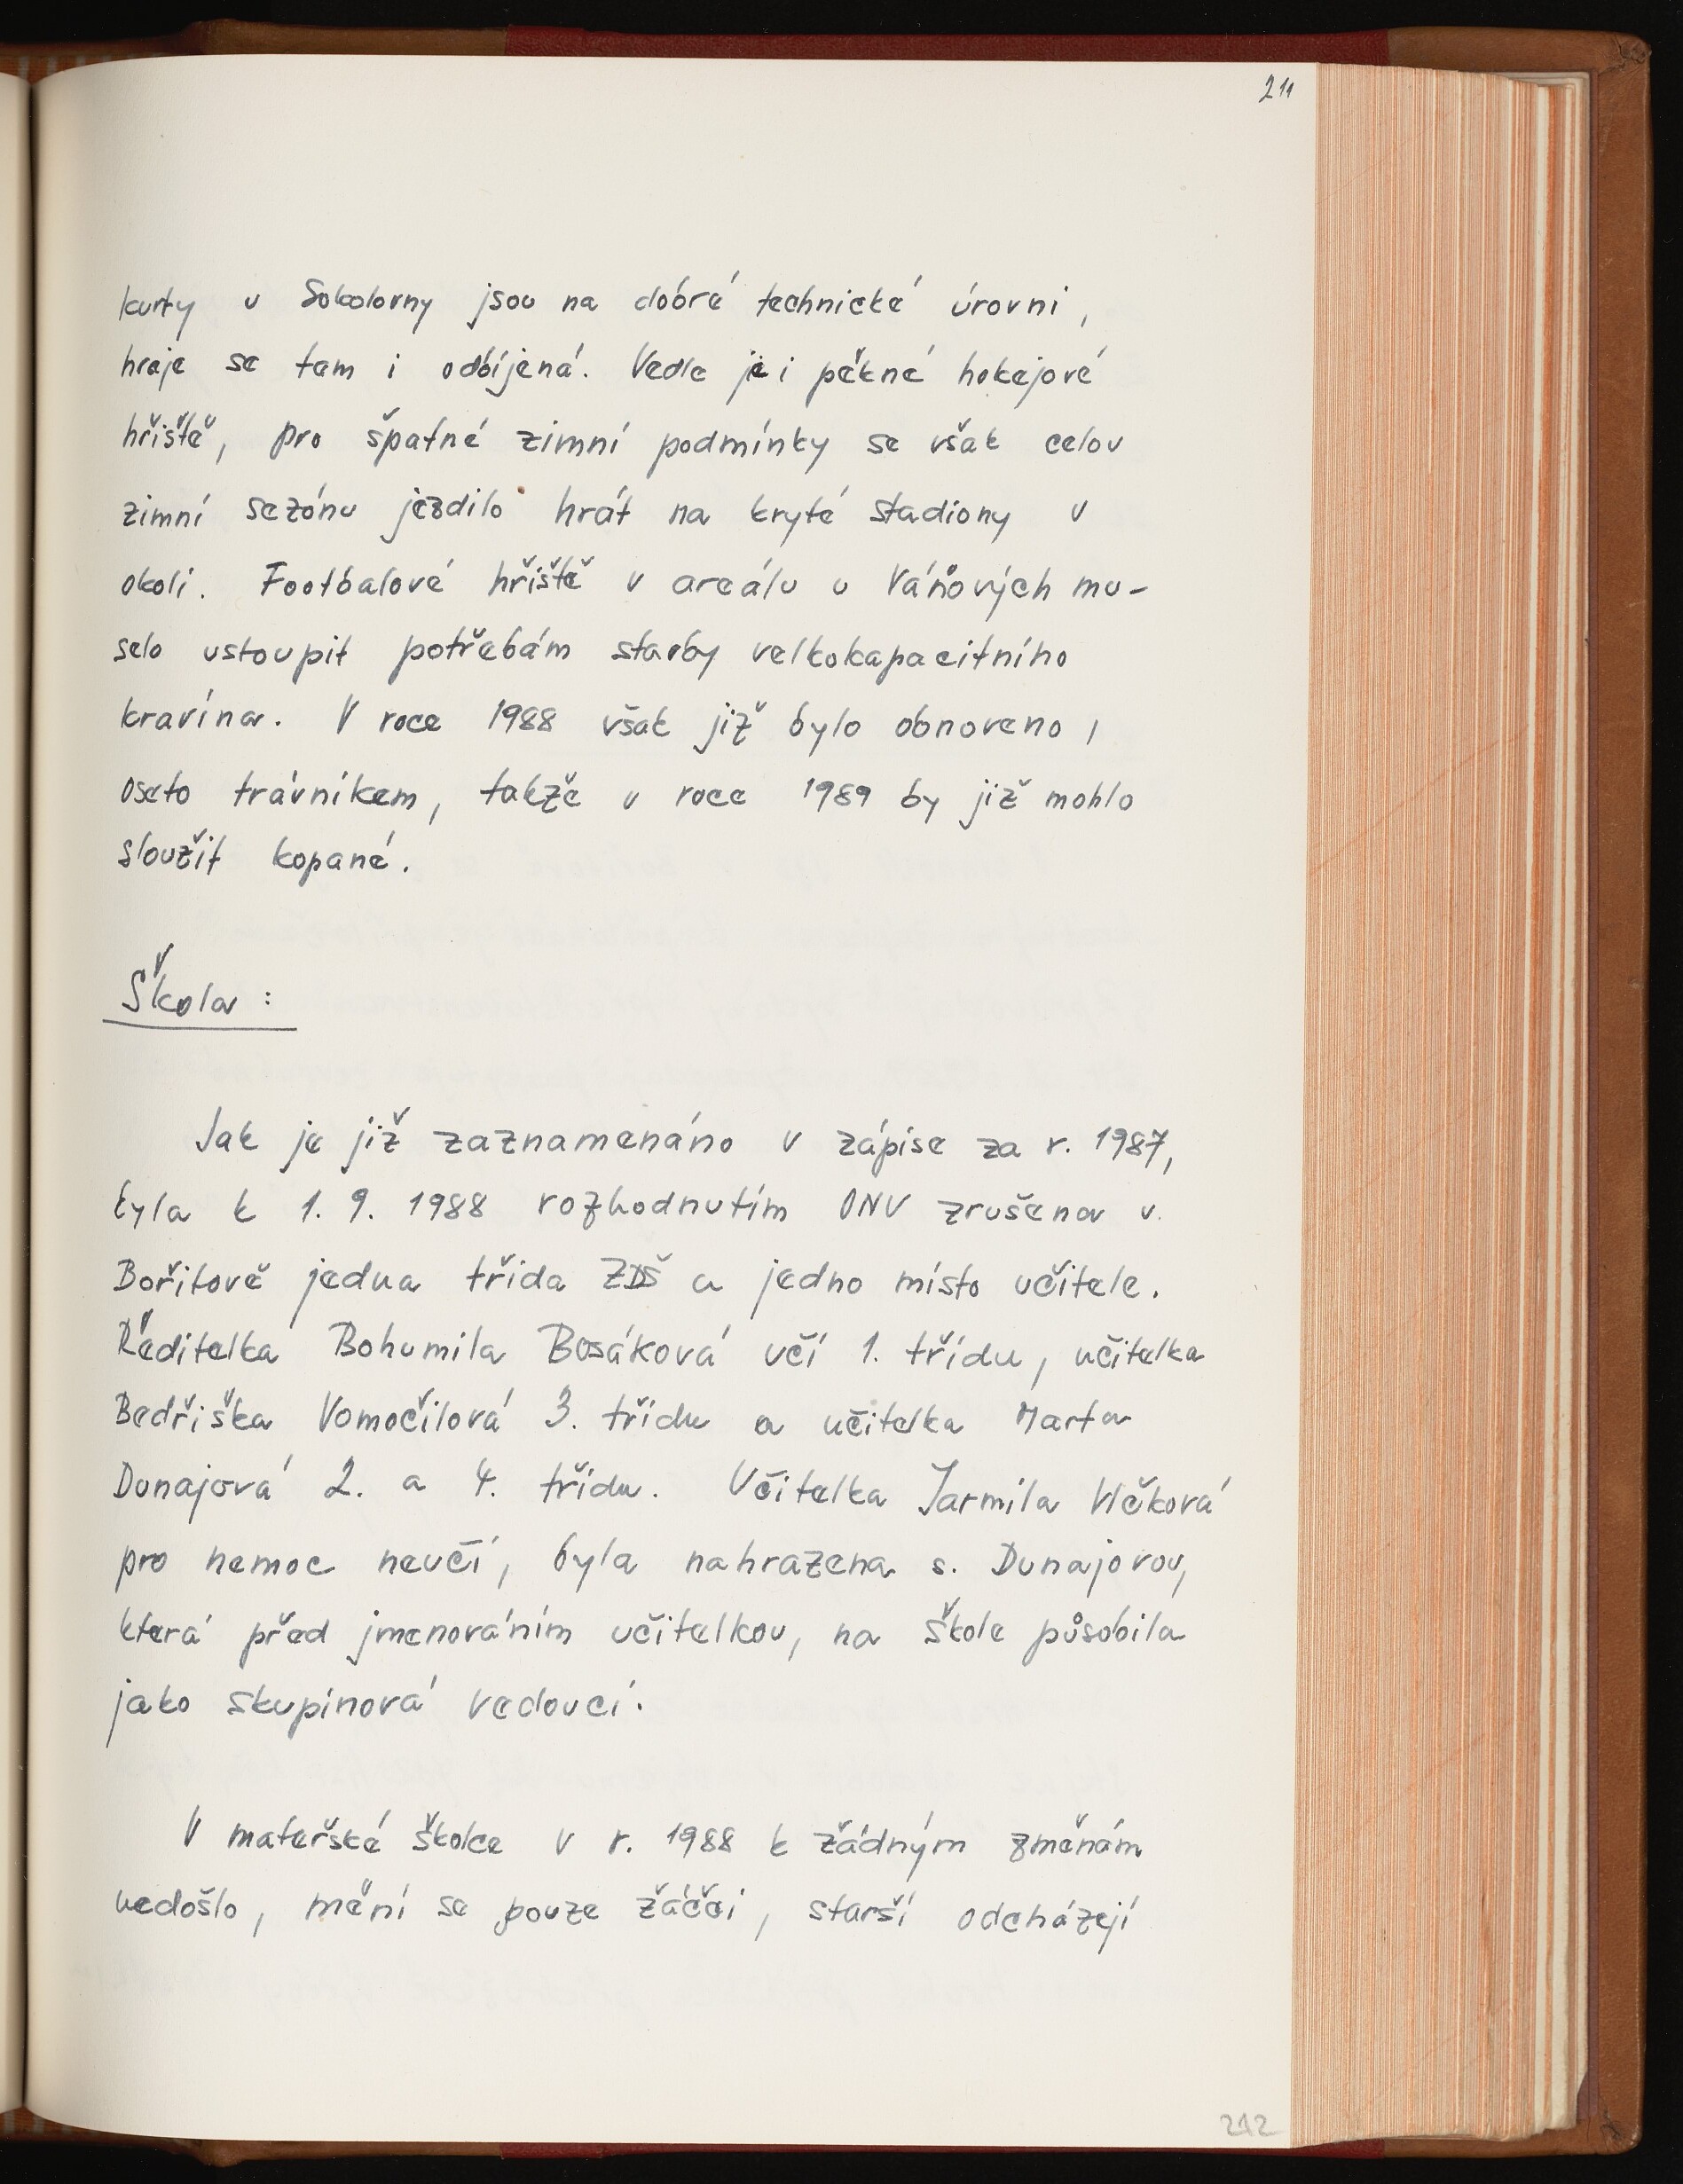 211
kurty u Sokolovny jsou na dobré technické úrovni,
hraje se tam i odbíjená. Vedle je i pěkné hokejové
hřiště, pro špatné zimní podmínky se však celou
zimní sezónu jezdilo hrát na kryté stadiony v
okolí. Footbalové hřiště v areálu u Váňových mu-
selo ustoupit potřebám stavby velkokapacitního
kravína. V roce 1988 však již bylo obnoveno,
oseto trávníkem, takže v roce 1989 by již mohlo
sloužit kopané.
Škola:
Jak je již zaznamenáno v zápise za r. 1987,
byla k 1. 9. 1988 rozhodnutím ONV zrušena v
Bořitově jedna třída ZDŠ a jedno místo učitele.
Ředitelka Bohumila Bosáková učí 1. třídu, učitelka
Bedřiška Vomočilová 3. třídu a učitelka Marta
Dunajová 2. a 4. třídu. Učitelka Jarmila Vlčková
pro nemoc neučí, byla nahrazena s. Dunajovou,
která před jmenováním učitelkou, na škole působila
jako skupinová vedoucí.
V mateřské školce v r. 1988 k žádným změnám
nedošlo, mění se pouze žáčci, starší odcházejí
212